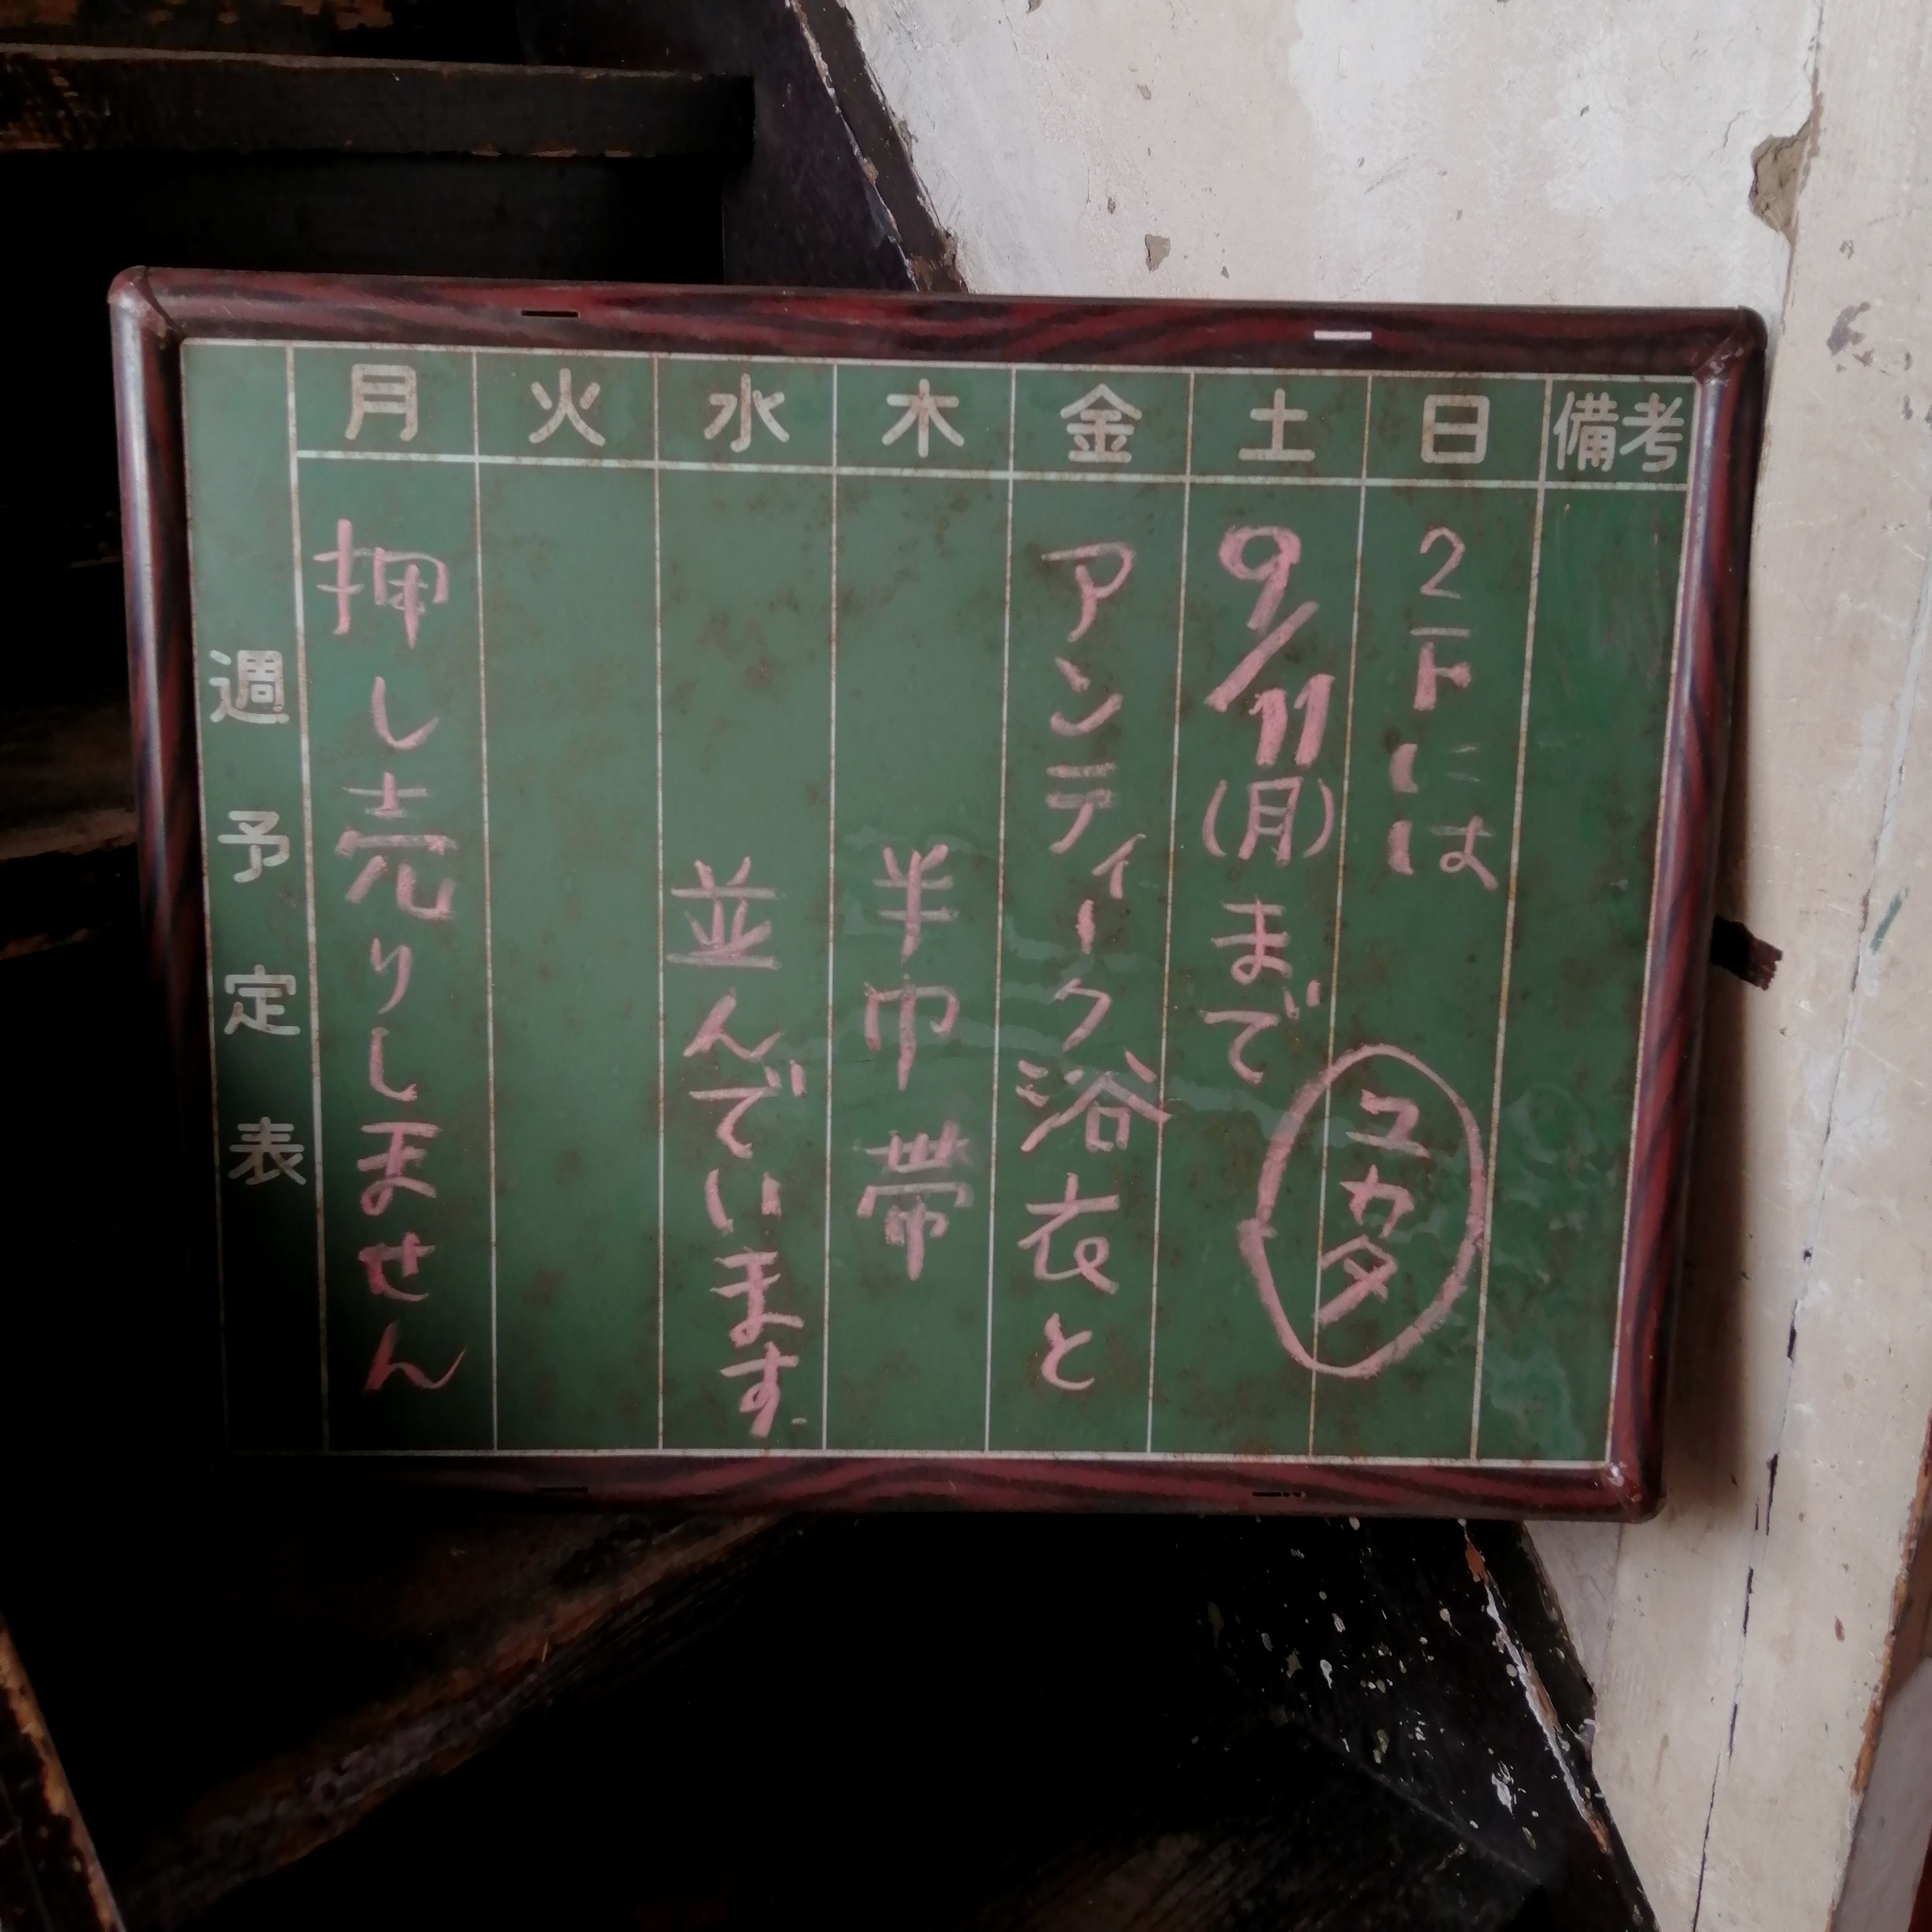 月 火 水 木 金 土 日 備考
週予定表
2Fには
ユカタ
9/11(月)まで
アンティーク浴衣と
半巾帯
並んでいます
押し売りしません